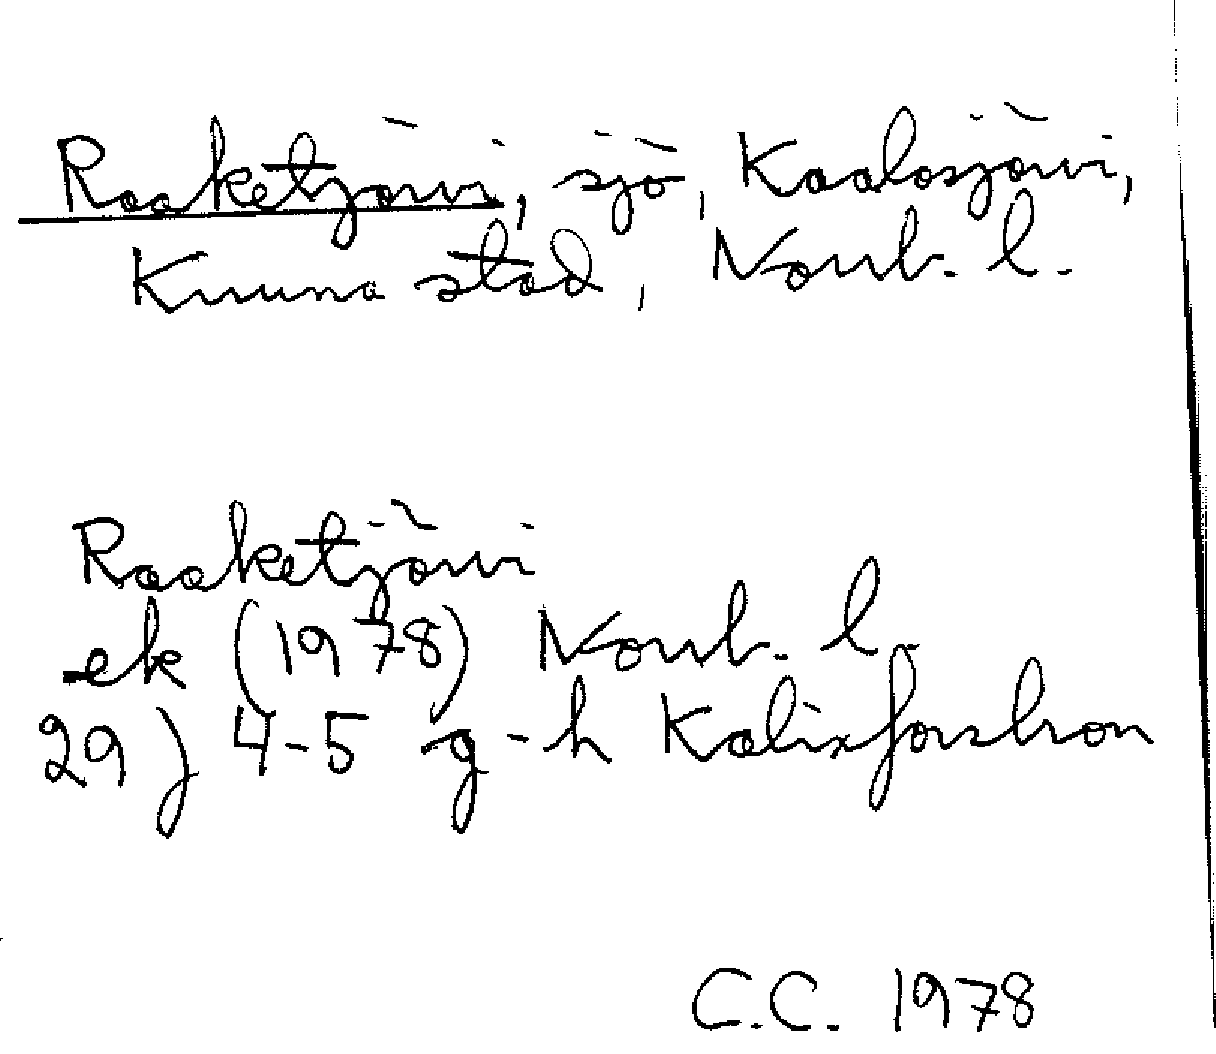 Raaketjärvi, sjö, Kaalasjärvi,
Kiruna stad, Norrb. l.
Raaketjärvi
ek (1978) Norrb. l.
29 J 4-5 g-h Kalixforsbron
C.C. 1978